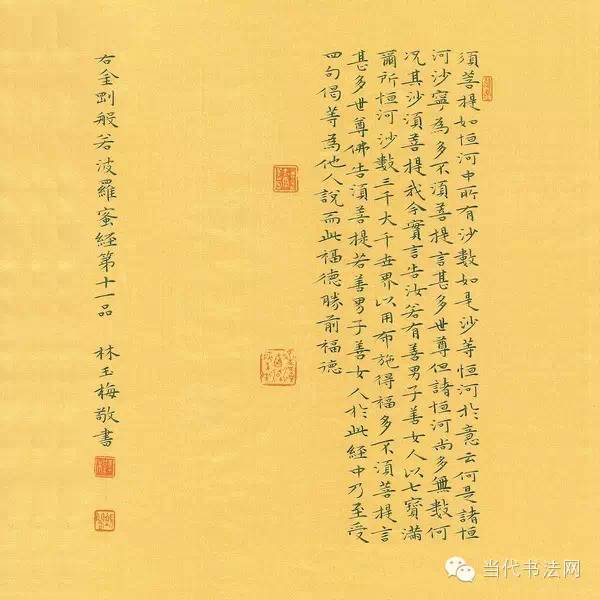 須菩提如恒河中所有沙數如是沙等恒河於意云何是諸恒
河沙寧為多不須菩提言甚多世尊但諸恒河尚多無數何
况其沙須菩提我今實言告汝若有善男子善女人以七寶滿
爾所恒河沙數三千大千世界以用布施得福多不須菩提言
甚多世尊佛告須菩提若善男子善女人於此經中乃至受
四句偈等為他人說而此福德勝前福德
右金剛般若波羅蜜經第十一品 林玉梅敬書
当代书法网